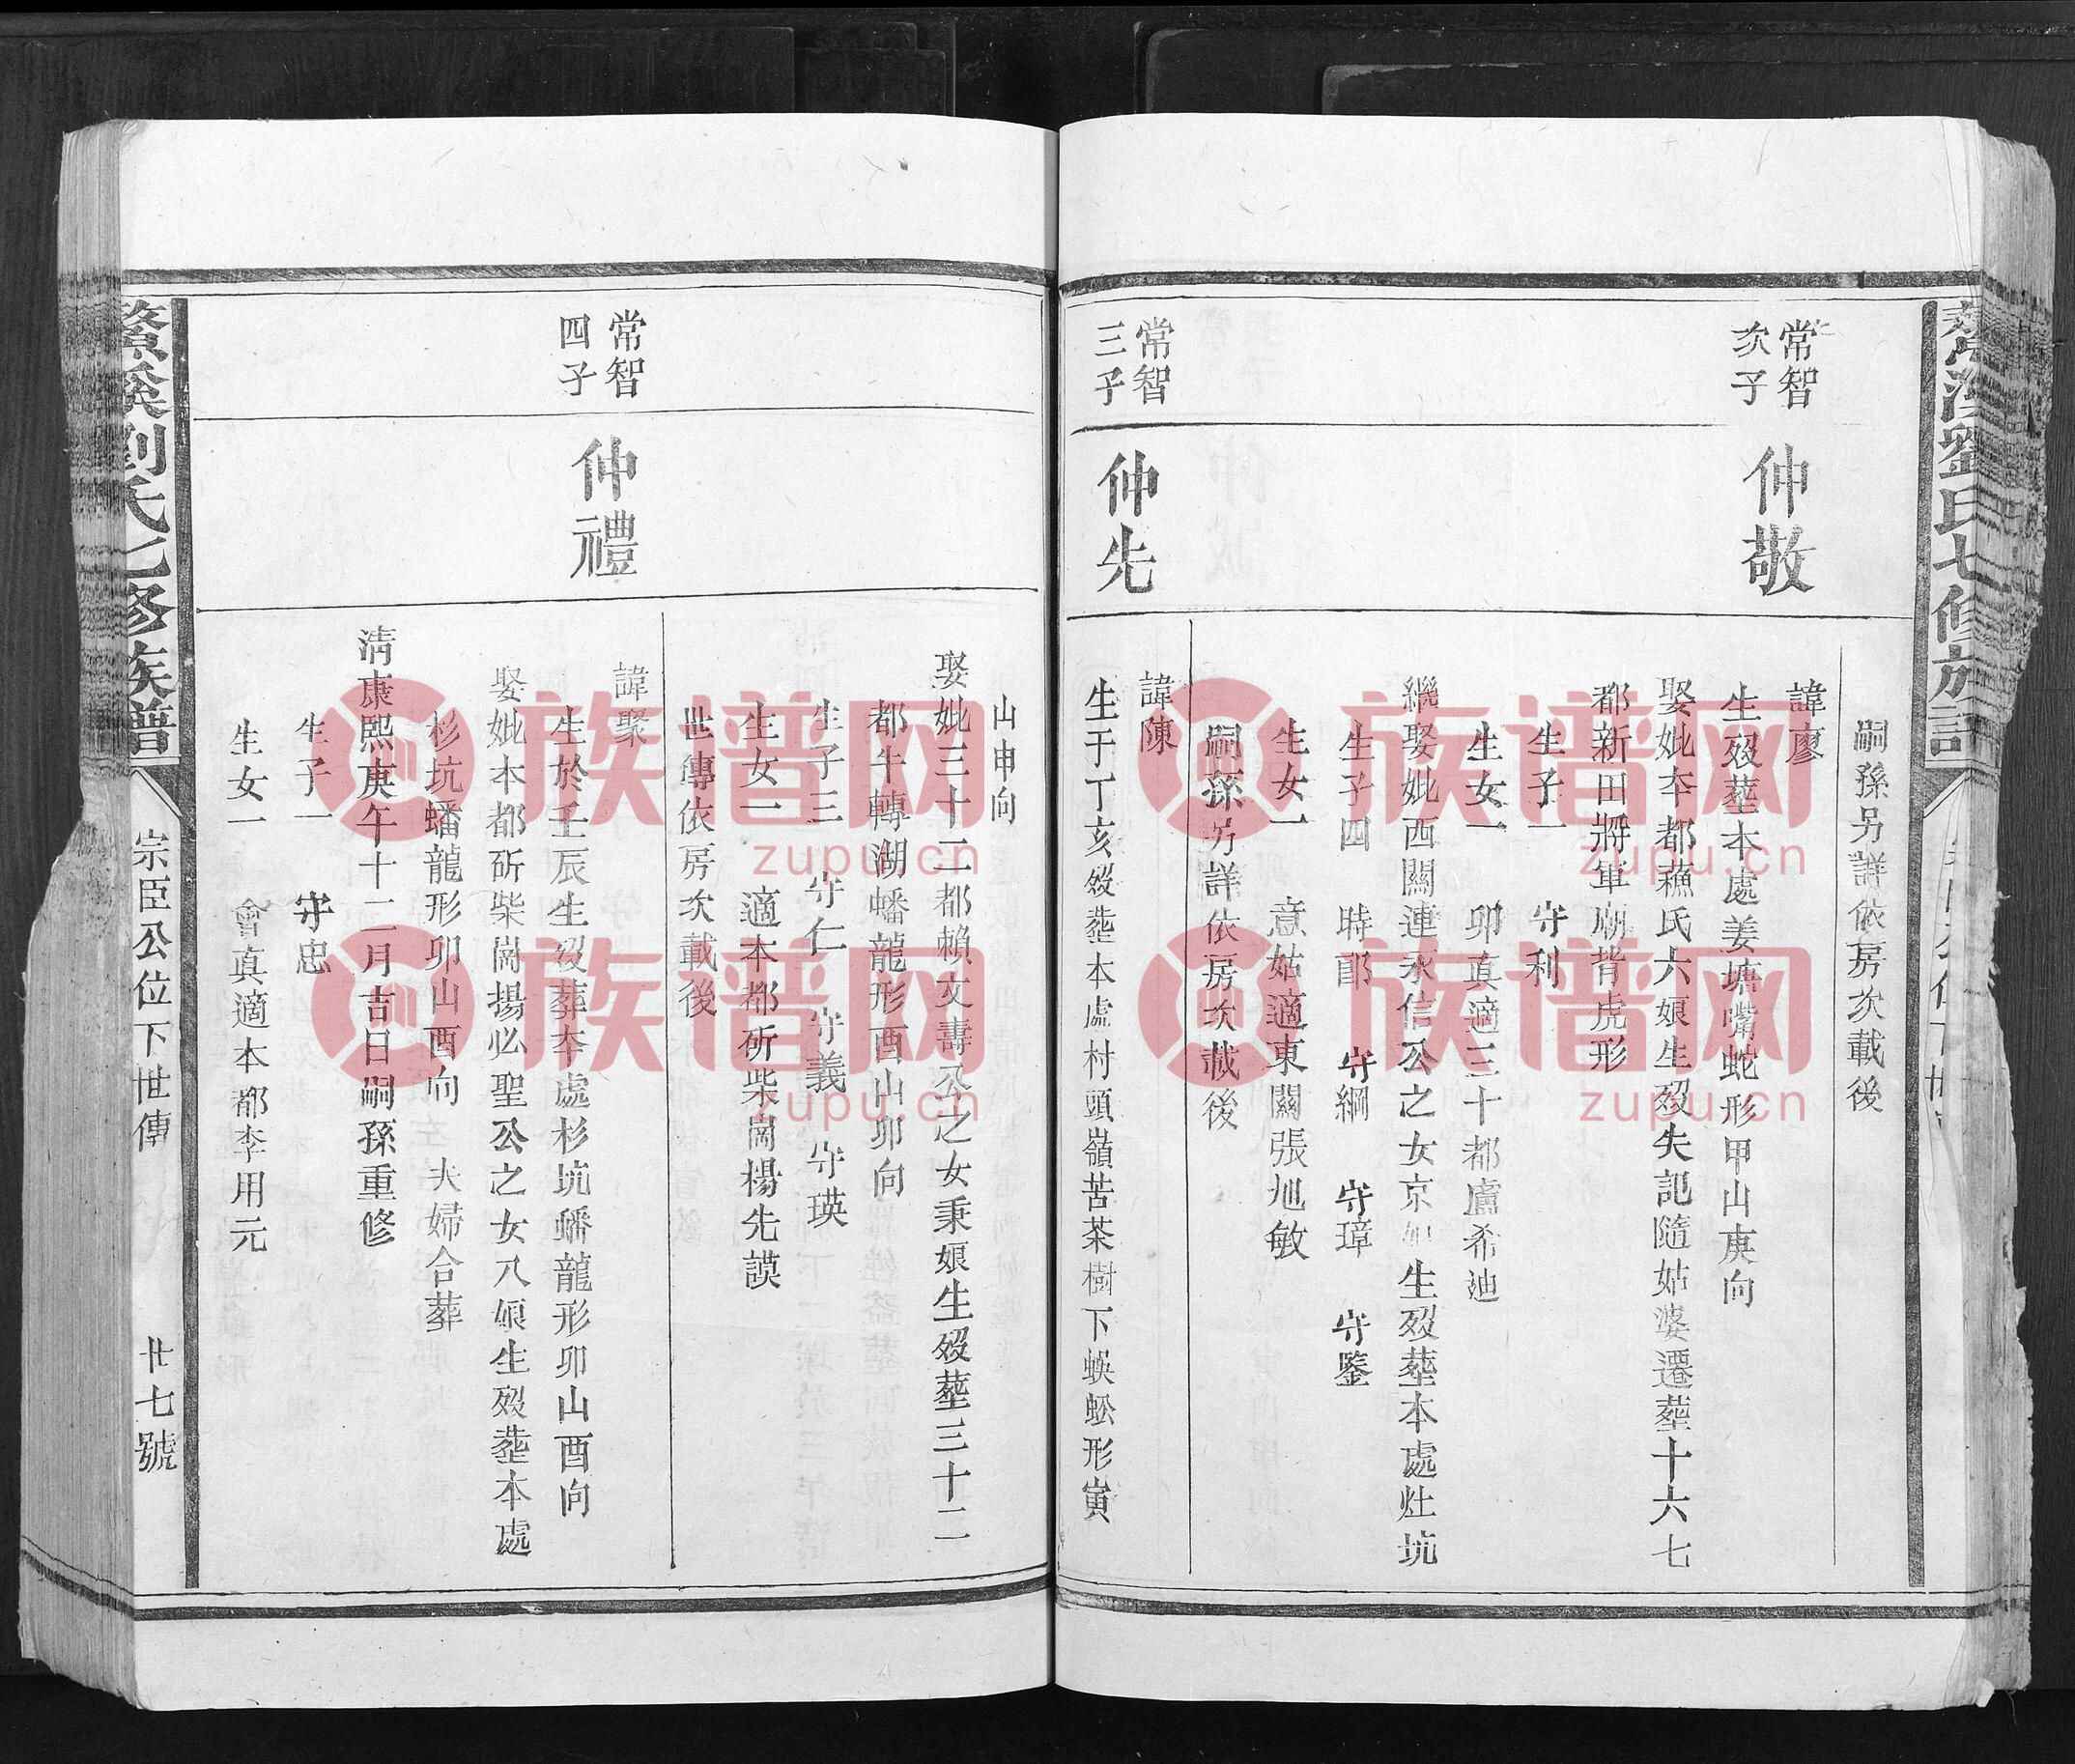 嗣孫另詳依房次載後
常智
次子
仲敬
諱廖
生歿塟本處姜塘嘴蛇形甲山庚向
娶妣本都蘓氏六娘生歿失記隨姑婆遷塟十六七
都新田將軍廟背虎形
生子一　守利
生女一　卯真適三十都盧希迪
繼娶妣西關連永信公之女京　生歿塟本處灶坑
生子四　時郎　守綱　守璋　守鑒
生女一　意姑適東關張旭敏
嗣孫另詳依房次載後
常智
三子
仲先
諱陳
生于丁亥歿塟本處村頭嶺苦茶樹下蜈蚣形寅
山申向
娶妣三十二都賴文壽公之女秉娘生歿塟三十二
都牛轉湖蟠龍形酉山卯向
生子三　守仁　守義　守瑛
生女一　適本都斫柴崗楊先謨
世傳依房次載後
常智
四子
仲禮
諱聚
生於壬辰生歿葬本處杉坑蟠龍形卯山酉向
娶妣本都斫柴崗揚必聖公之女八娘生歿塟本處
杉坑蟠龍形卯山酉向　夫婦合葬
淸康熙庚午十二月吉日嗣孫重修
生子一　守忠
生女一　會真適本都李用元
劉氏七修族譜
宗臣公位下世傳
廿七號
族谱网
zupu.cn
族谱网
zupu.cn
族谱网
zupu.cn
族谱网
zupu.cn